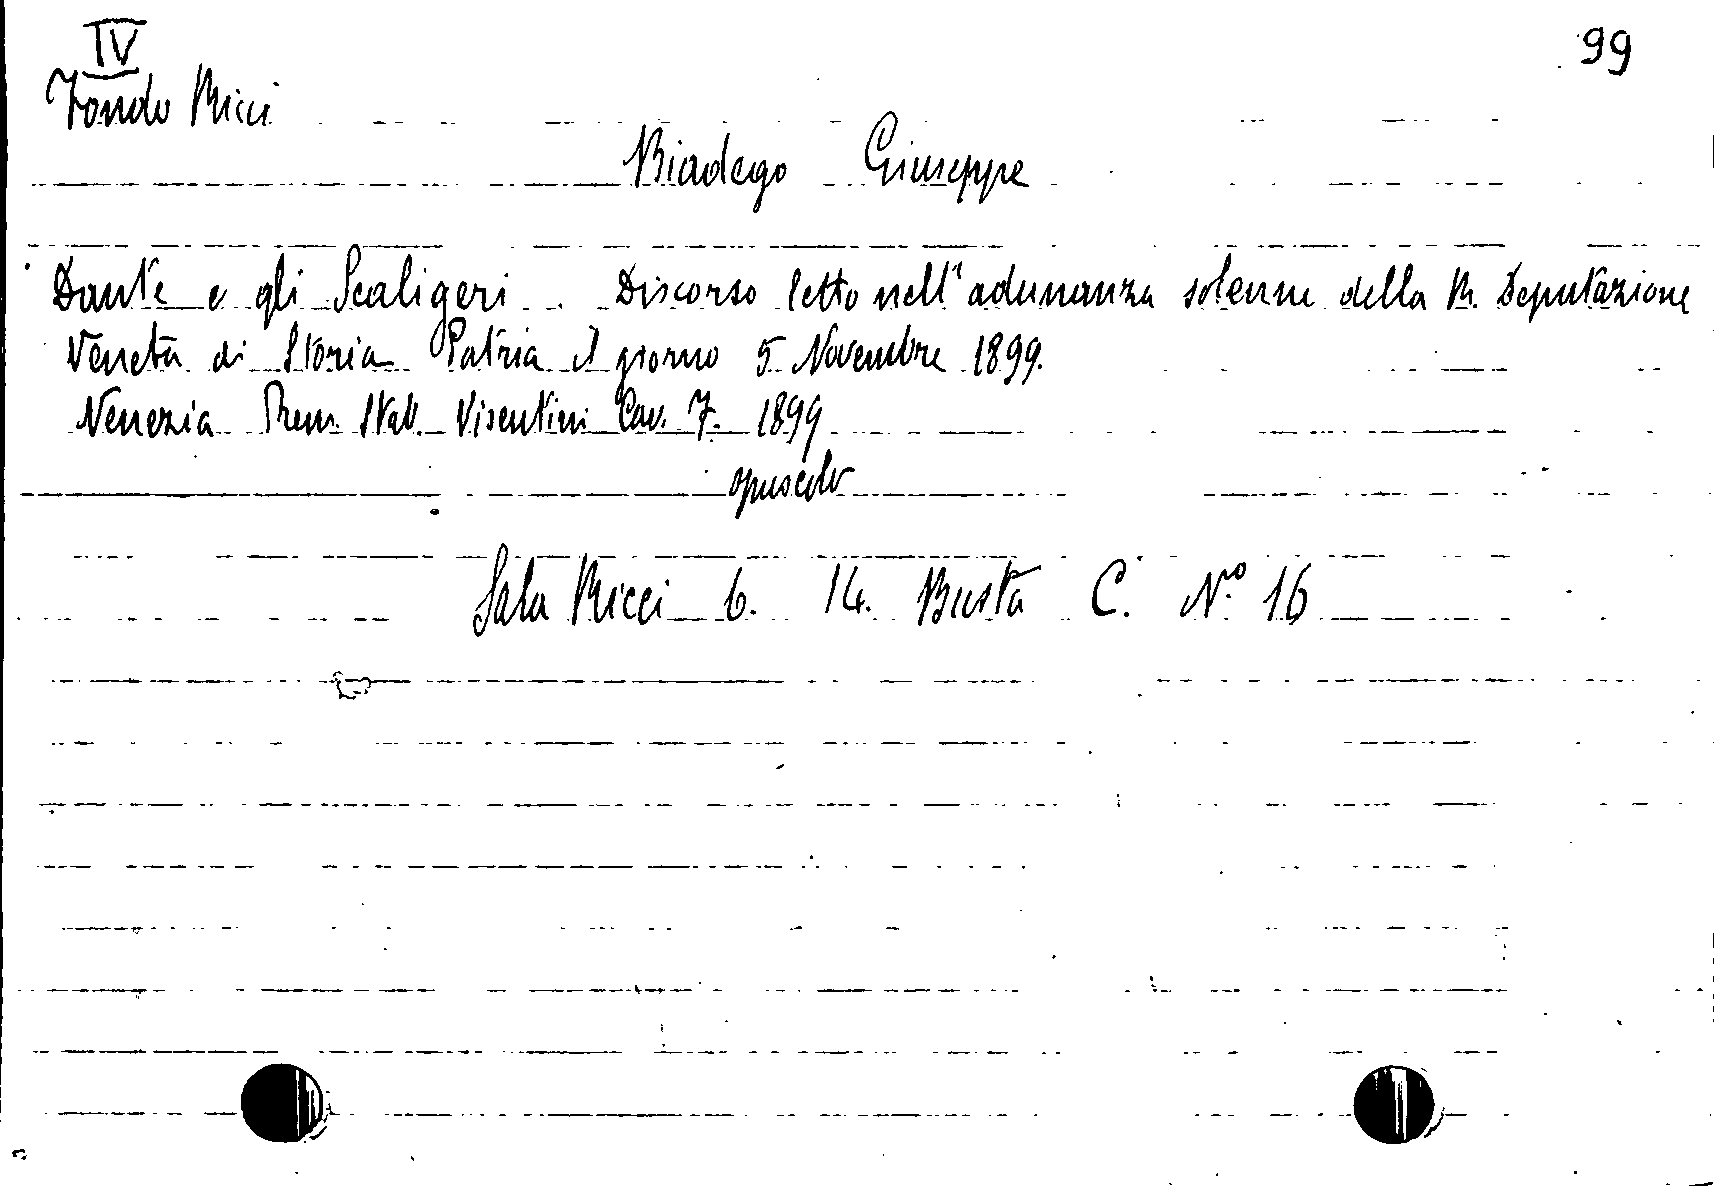 IV
99
Fondo Ricci
Biadego Giuseppe
Dante e gli Scaligeri. Discorso letto nell'adunanza solenne della R. Deputazione
Veneta di Storia Patria il giorno 5 Novembre 1899.
Venezia Prem. Stab. Visentini Cav. F. 1899
opuscolo
Sala Ricci 6. 14. Busta C. N.° 16